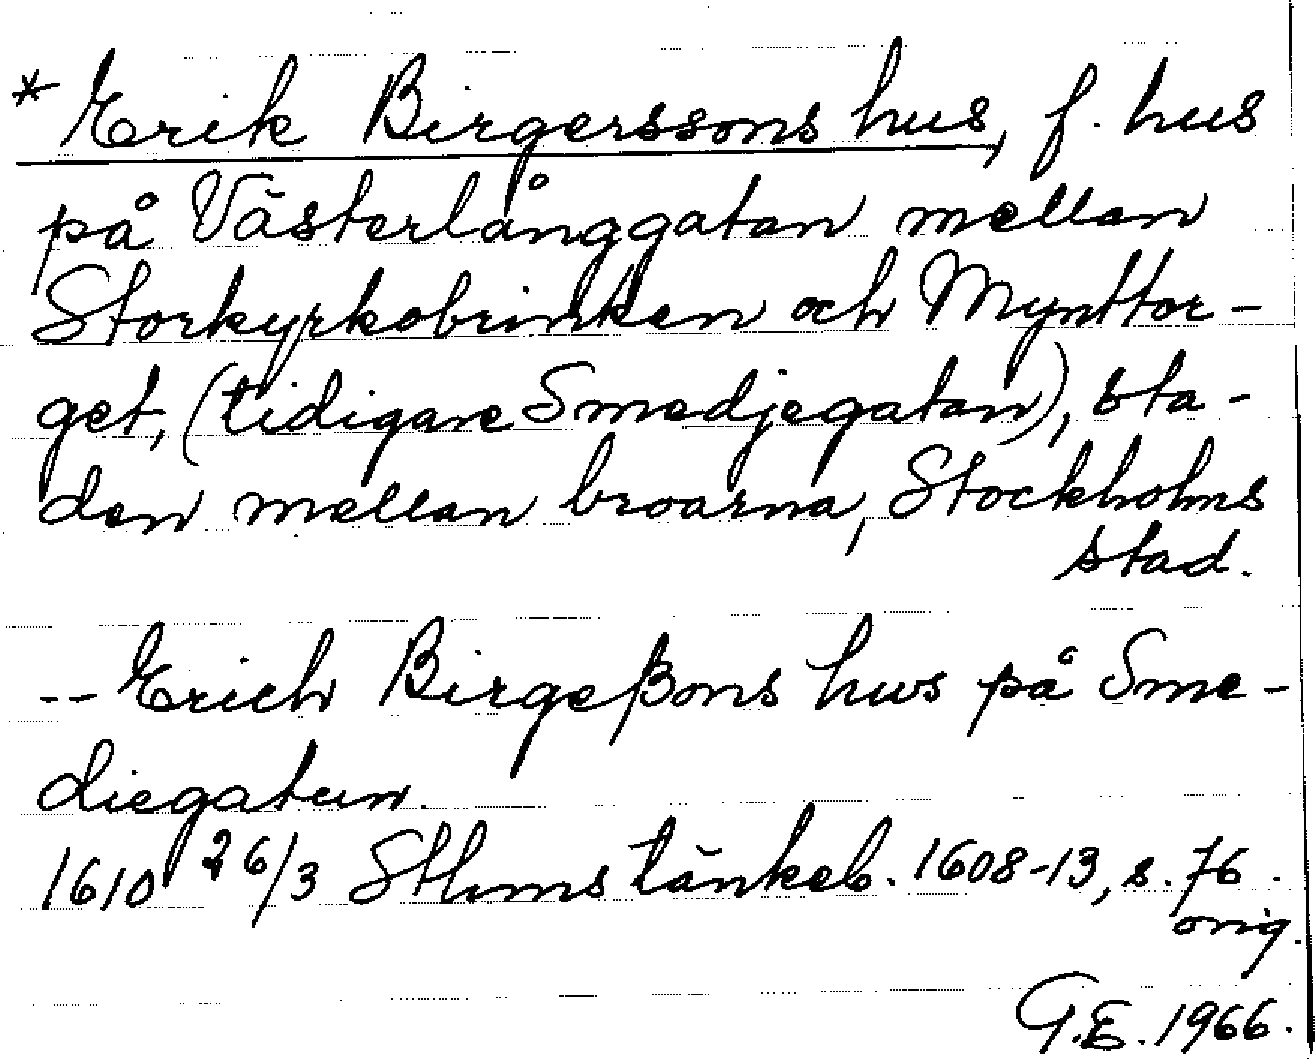 * Erik Birgerssons hus, f. hus
på Västerlånggatan mellan
Storkyrkobrinken och Mynttor-
get, (tidigare Smedjegatan), sta-
den mellan broarna, Stockholms
stad.
-- Erich Birgeßons hws på Sme-
diegatun.
1610 26/3 Sthms tänkeb. 1608-13, s. 76.
orig.
G.E. 1966.